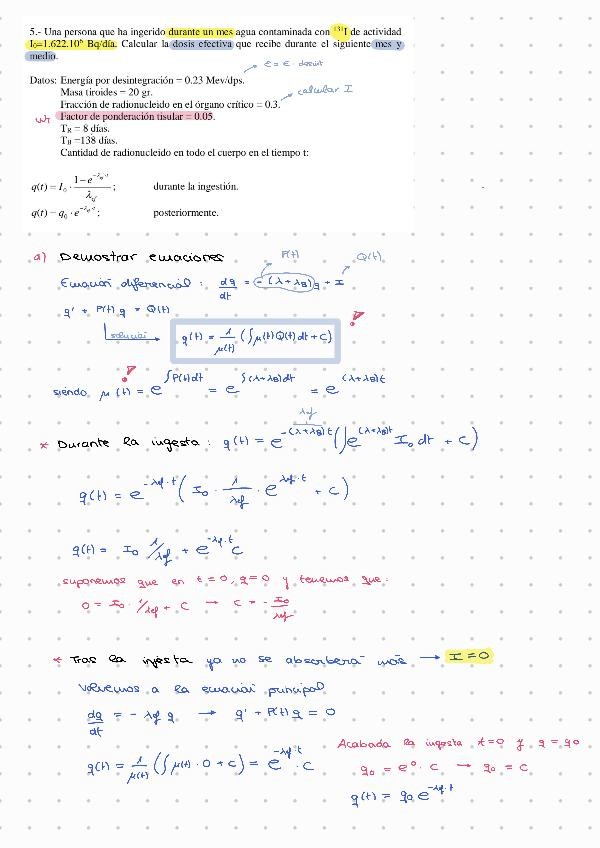 5.- Una persona que ha ingerido durante un mes agua contaminada con ¹³¹I de actividad
I₀=1.622.10⁶ Bq/día. Calcular la dosis efectiva que recibe durante el siguiente mes y
medio.
Ė = E · desint
Datos: Energía por desintegración = 0.23 Mev/dps.
Masa tiroides = 20 gr.
calcular I
Fracción de radionucleido en el órgano crítico = 0.3.
W_T Factor de ponderación tisular = 0.05.
T_R = 8 días.
T_B =138 días.
Cantidad de radionucleido en todo el cuerpo en el tiempo t:
q(t) = I₀ · (1 − e^(−λ_ef·t)) / λ_ef ; durante la ingestión.
q(t) = q₀ · e^(−λ_ef·t) ; posteriormente.
a) Demostrar ecuaciones
P(t) Q(t)
Ecuación diferencial : dq/dt = - (λ+λ_B) q + I
q' + P(t) q = Q(t)
solución → q(t) = 1/μ(t) (∫ μ(t) Q(t) dt + C)
siendo μ(t) = e^(∫P(t)dt) = e^(∫(λ+λ_B)dt) = e^((λ+λ_B)t)
λef
* Durante la ingesta : q(t) = e^(-(λ+λ_B)t) (∫ e^((λ+λ_B)t) I₀ dt + C)
q(t) = e^(-λef·t) ( I₀ · 1/λef · e^(λef·t) + C)
q(t) = I₀ 1/λef + e^(-λef·t) C
suponemos que en t = 0, q = 0 y tenemos que:
0 = I₀ · 1/λef + C → C = - I₀/λef
* Tras la ingesta ya no se absorberá más → I = 0
Volvemos a la ecuación principal
dq/dt = - λef q → q' + P(t) q = 0
Acabada la ingesta t=0 y q = q₀
q(t) = 1/μ(t) (∫ μ(t) · 0 + C) = e^(-λef·t) · C
q₀ = e⁰ · C → q₀ = C
q(t) = q₀ e^(-λef·t)